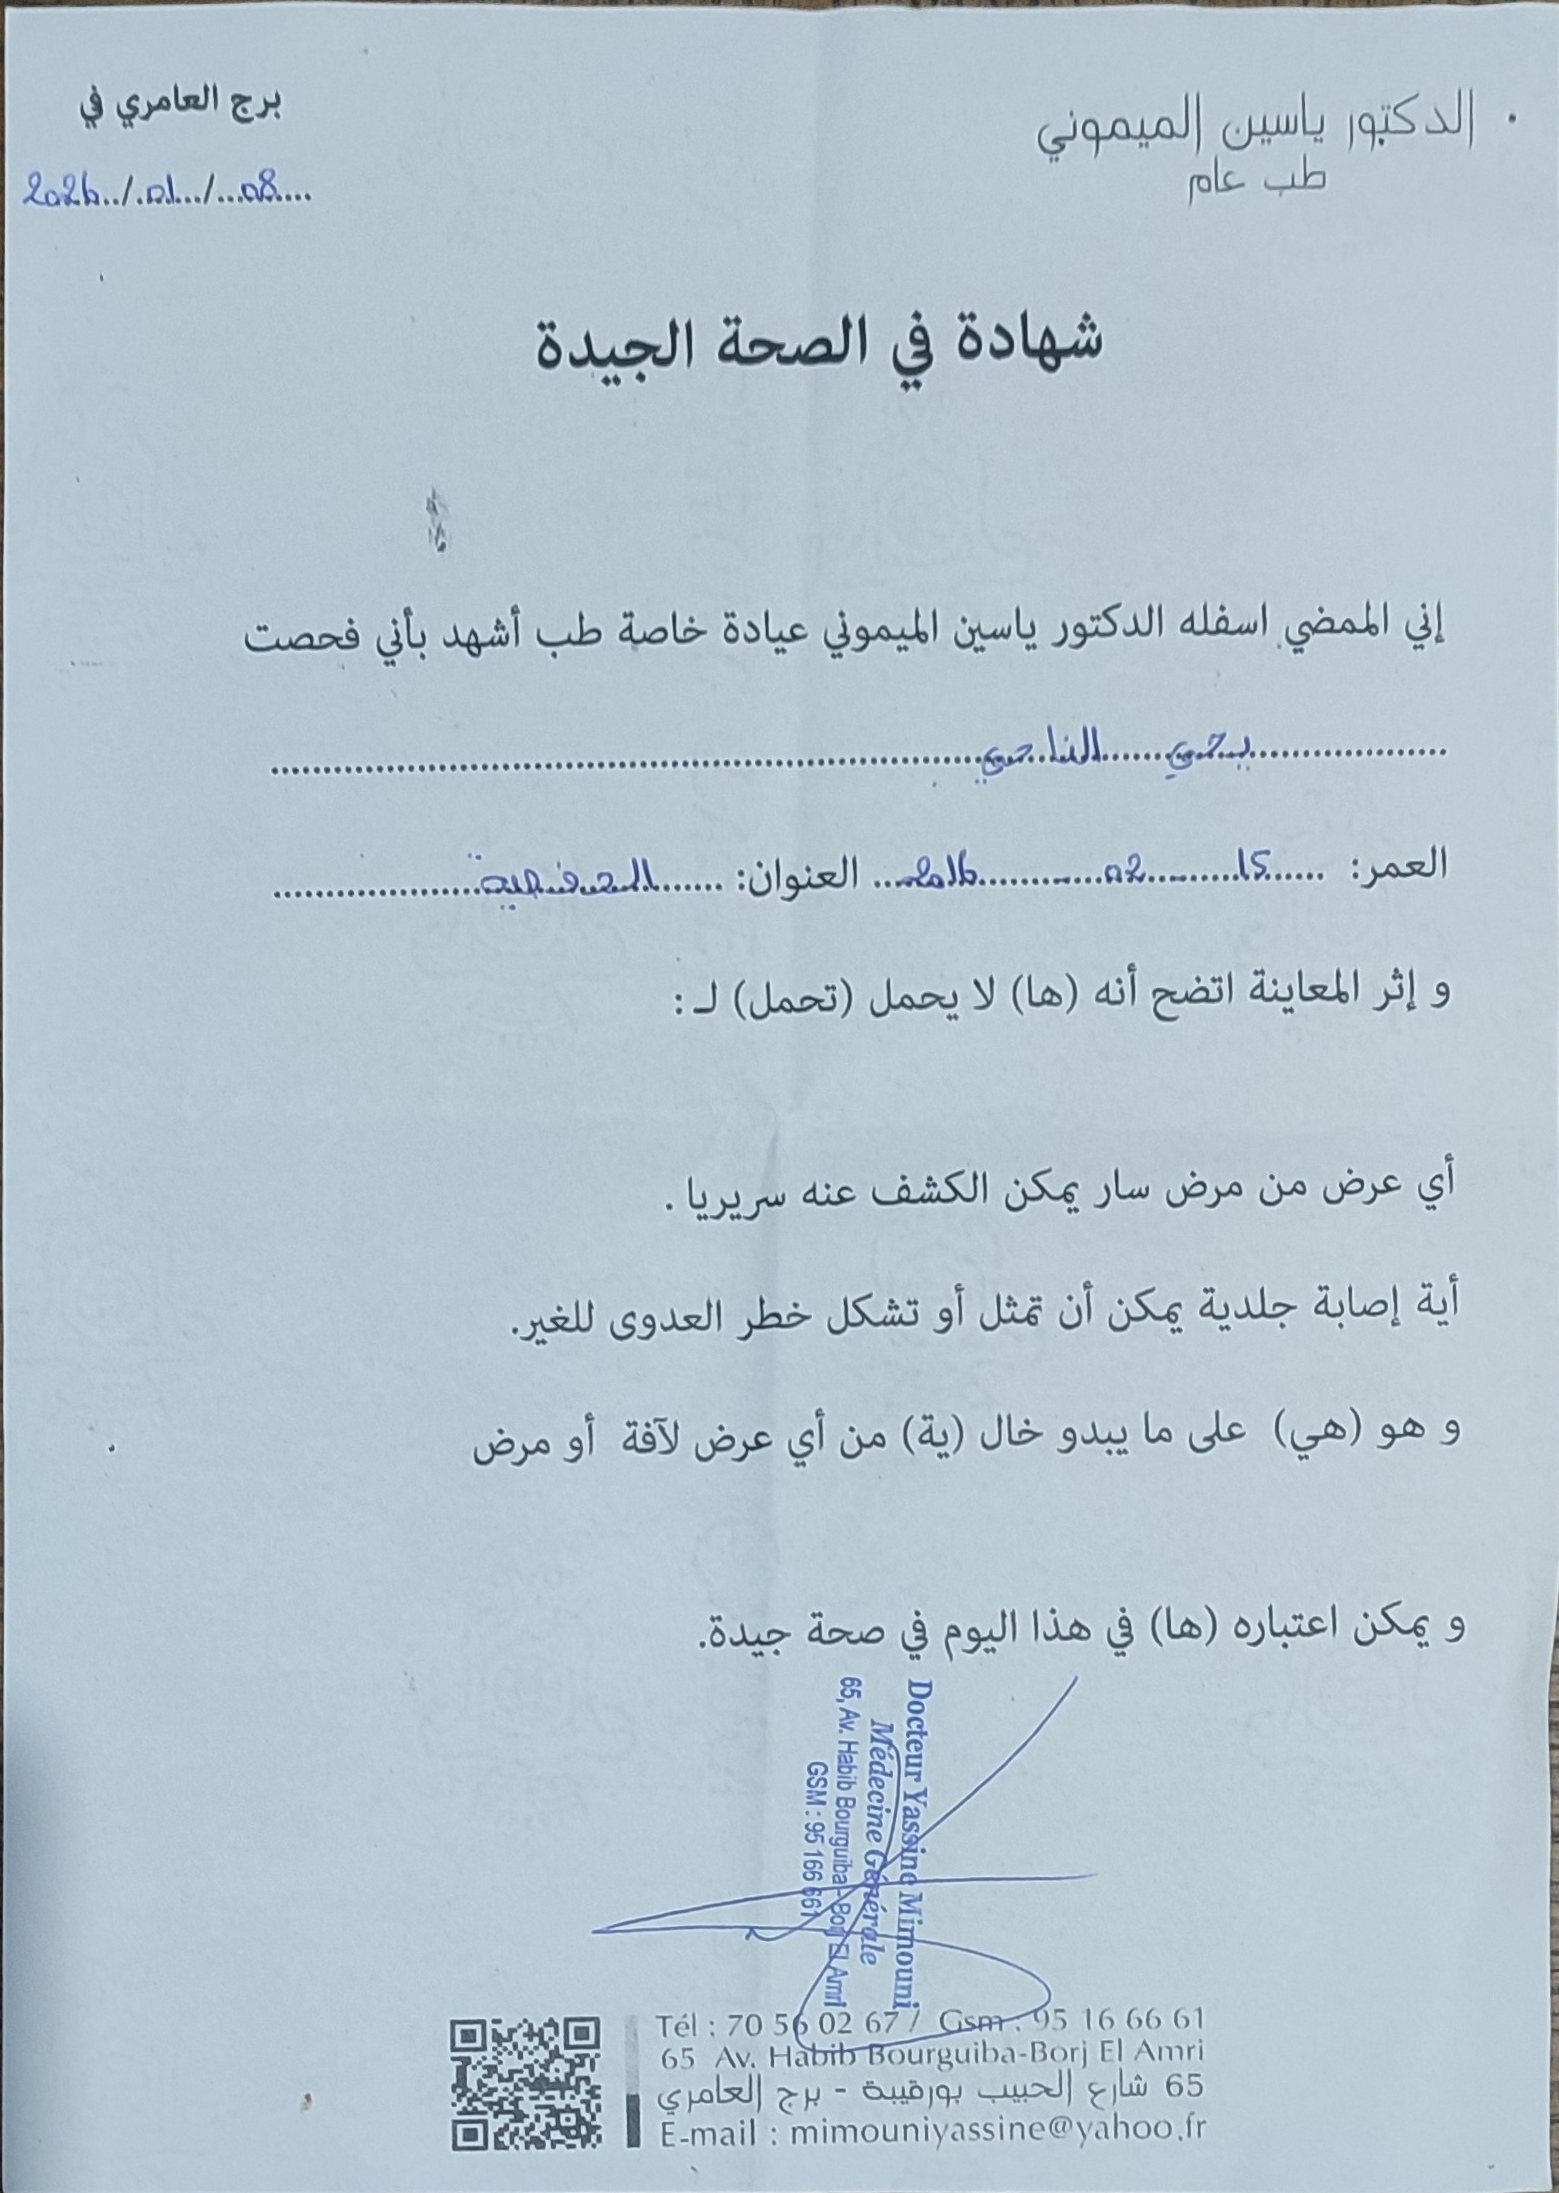 الدكتور ياسين الميموني
طب عام
برج العامري في
2026../.01.../...08....
شهادة في الصحة الجيدة
إني الممضي اسفله الدكتور ياسين الميموني عيادة خاصة طب أشهد بأني فحصت
يحيى الناجي
العمر: ......15.........02............2016... العنوان: ......
و إثر المعاينة اتضح أنه (ها) لا يحمل (تحمل) لـ :
أي عرض من مرض سار يمكن الكشف عنه سريريا .
أية إصابة جلدية يمكن أن تمثل أو تشكل خطر العدوى للغير.
و هو (هي) على ما يبدو خال (ية) من أي عرض لآفة أو مرض
و يمكن اعتباره (ها) في هذا اليوم في صحة جيدة.
Docteur Yassine Mimouni
Médecine Générale
65, Av. Habib Bourguiba - Borj El Amri
GSM : 95 166 661
Tél : 70 56 02 67 / Gsm : 95 16 66 61
65 Av. Habib Bourguiba-Borj El Amri
65 شارع الحبيب بورقيبة - برج العامري
E-mail : mimouniyassine@yahoo.fr